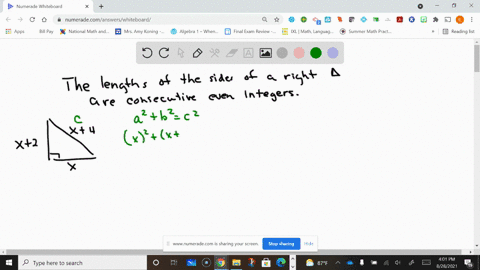 Numerade Whiteboard
numerade.com/answers/whiteboard/
Apps
Bb
National Math and...
Mrs. Amy Koning -...
Algebra 1 – Khann...
Final Exam Review -...
IXL | Math, Languag...
Summer Math Pract...
Reading list
The lengths of the sides of a right Δ
are consecutive even integers.
c
a² + b² = c²
x + 4
x+2
(x)² + (x+
x
www.numerade.com is sharing your screen.
Stop sharing
Hide
Type here to search
87°F
4:01 PM
8/28/2021